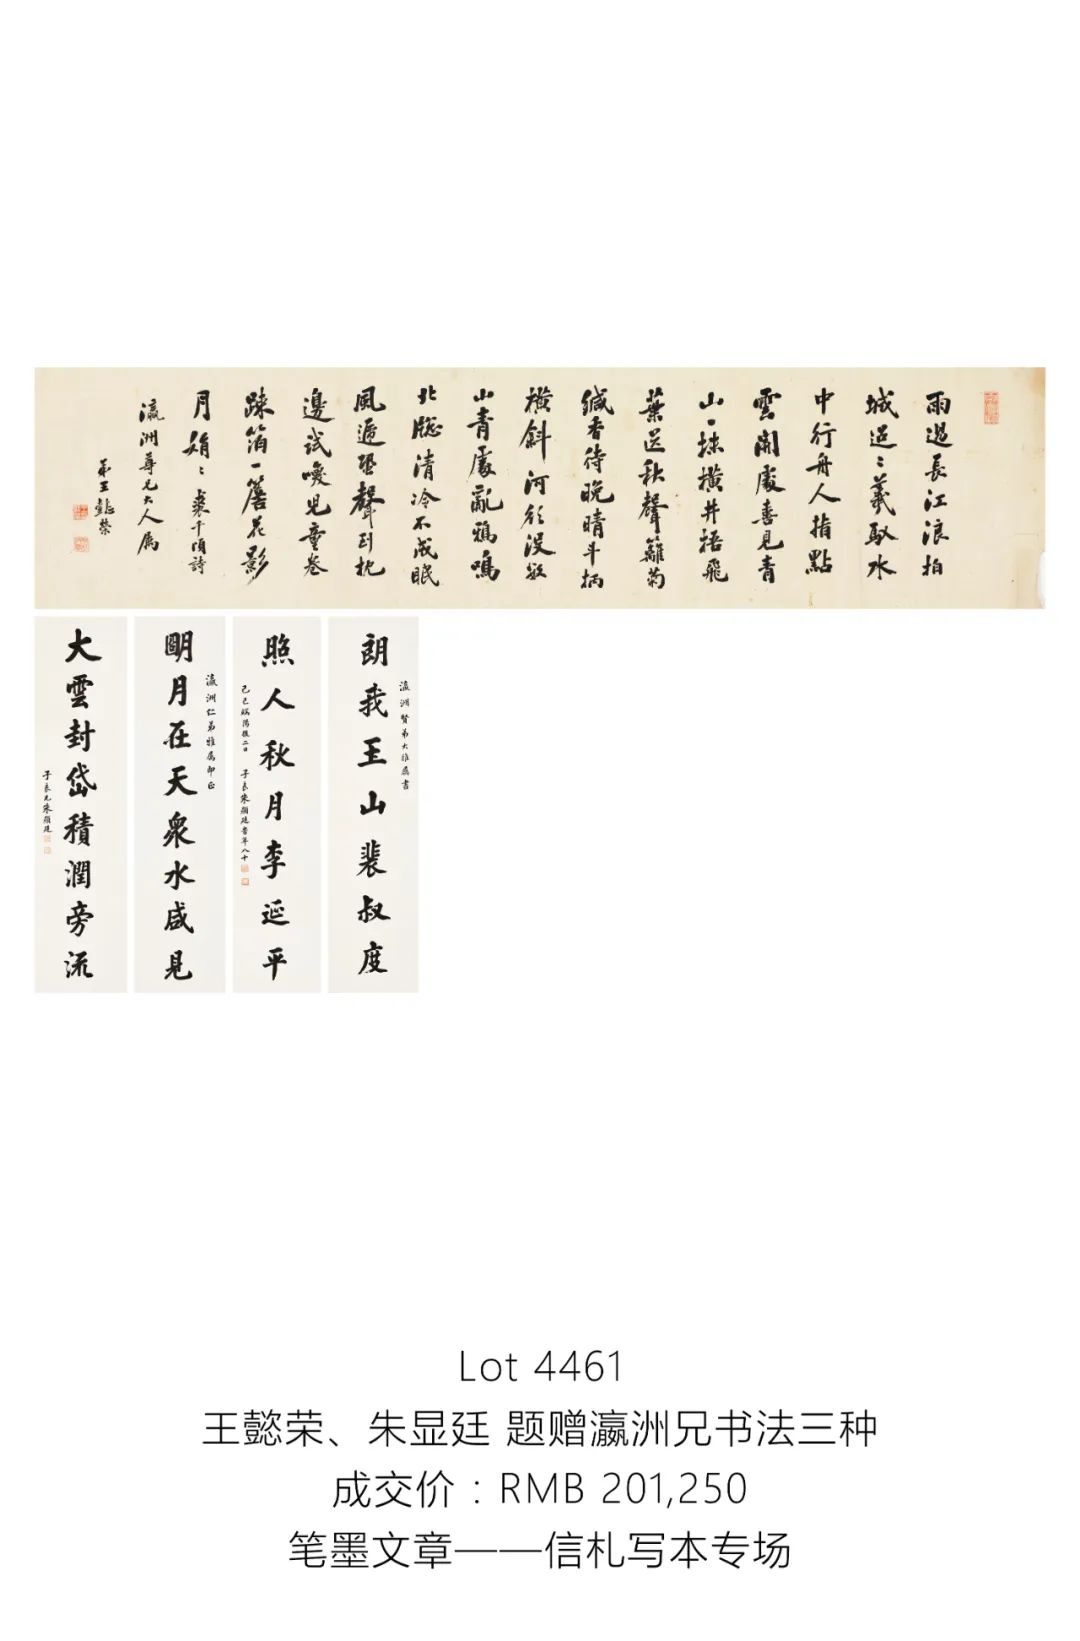 雨過長江浪拍
城迢〻羲馭水
中行舟人指點
雲開處喜見青
山一抹橫井梧飛
葉送秋聲籬菊
緘香待晚晴斗柄
橫斜河欲没數
山青處亂鴉鳴
北牕清冷不成眠
風遞蛩聲到枕
邊試喚兒童卷
疎箔一簷花影
月娟〻裘千頃詩
瀛洲尊兄大人屬
弟王懿榮
瀛洲賢弟大雅屬書
朗我玉山裴叔度
照人秋月李延平
己巳端陽後二日 子良朱顯廷書年八十
瀛洲仁弟雅屬即正
明月在天衆水咸見
大雲封岱積潤旁流
子良兄朱顯廷
Lot 4461
王懿荣、朱显廷 题赠瀛洲兄书法三种
成交价：RMB 201,250
笔墨文章——信札写本专场